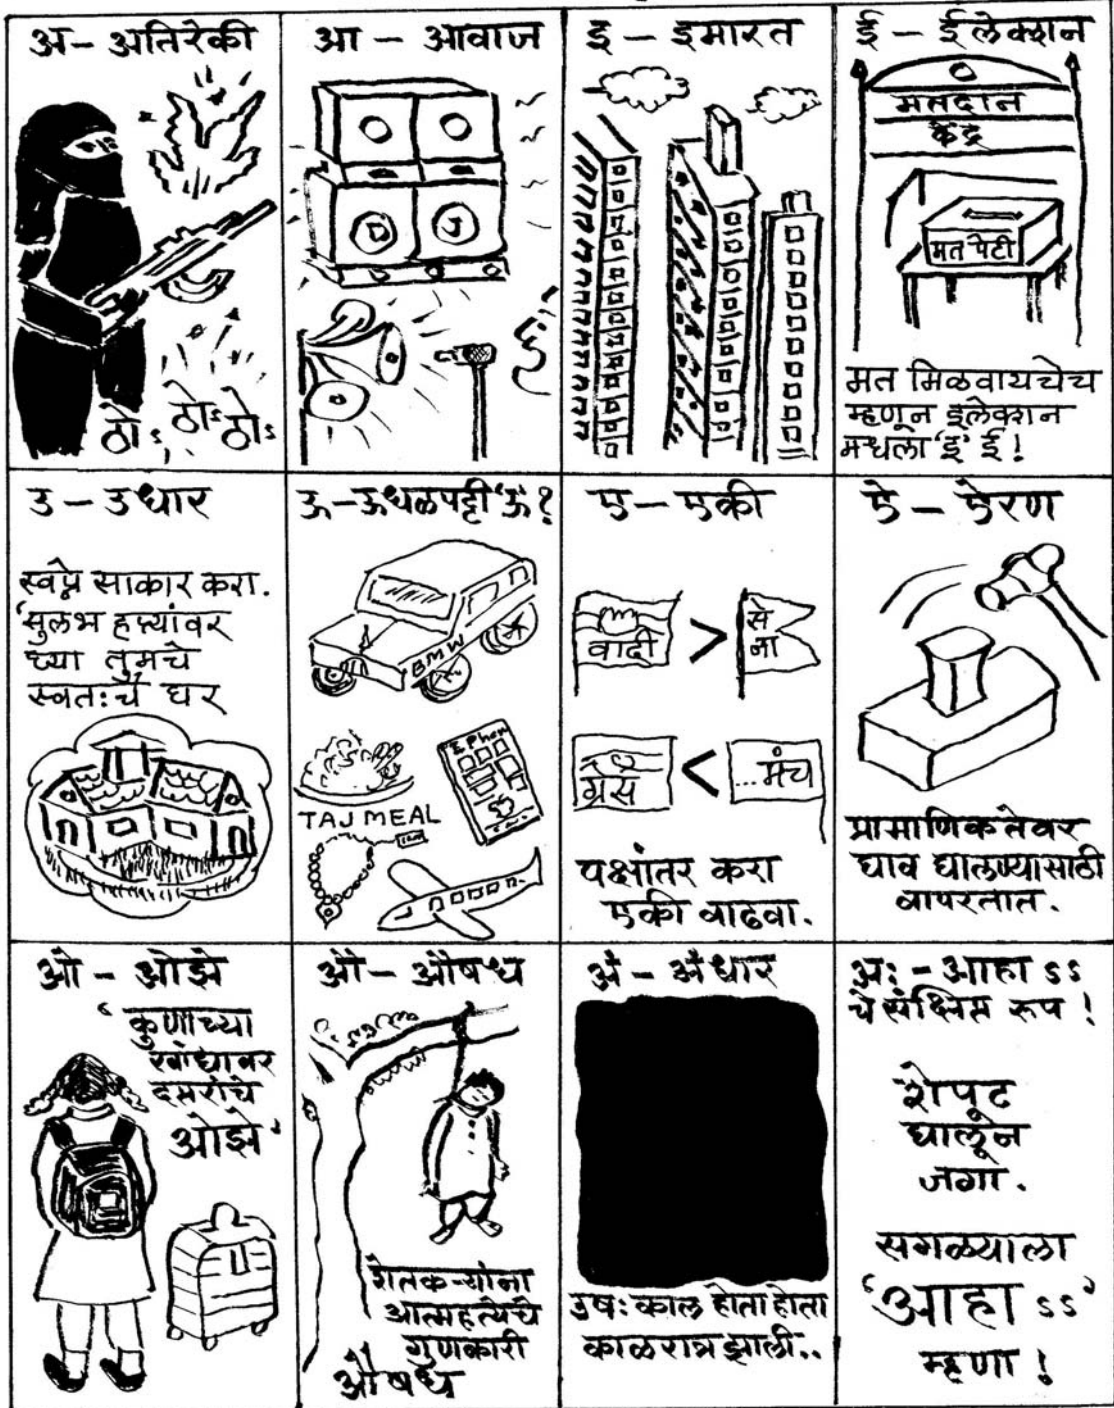 अ - अतिरेकी
ठोऽ ठोऽ ठोऽ
आ - आवाज
D J
इ - इमारत
ई - ईलेक्शन
मतदान
केंद्र
मत पेटी
मत मिळवायचेच
म्हणून इलेक्शन
मधला 'इ' ई!
उ - उधार
स्वप्ने साकार करा.
'सुलभ हप्त्यांवर
घ्या तुमचे
स्वतःचे घर
ऊ - ऊधळपट्टी 'ऊ'?
BMW
TAJ MEAL
ए - एकी
वादी > से
ना
ग्रेस < ...मंच
पक्षांतर करा
एकी वाढवा.
ऐ - ऐरण
प्रामाणिकतेवर
घाव घालण्यासाठी
वापरतात.
ओ - ओझे
'कुणाच्या
खांद्यावर
दप्तरांचे
ओझे'
औ - औषध
शेतकऱ्यांना
आत्महत्येचे
गुणकारी
औषध
अं - अंधार
उषःकाल होता होता
काळरात्र झाली..
अः - आहा ऽऽ
चे संक्षिप्त रूप!
शेपूट
घालून
जगा.
सगळ्याला
'आहा ऽऽ'
म्हणा!